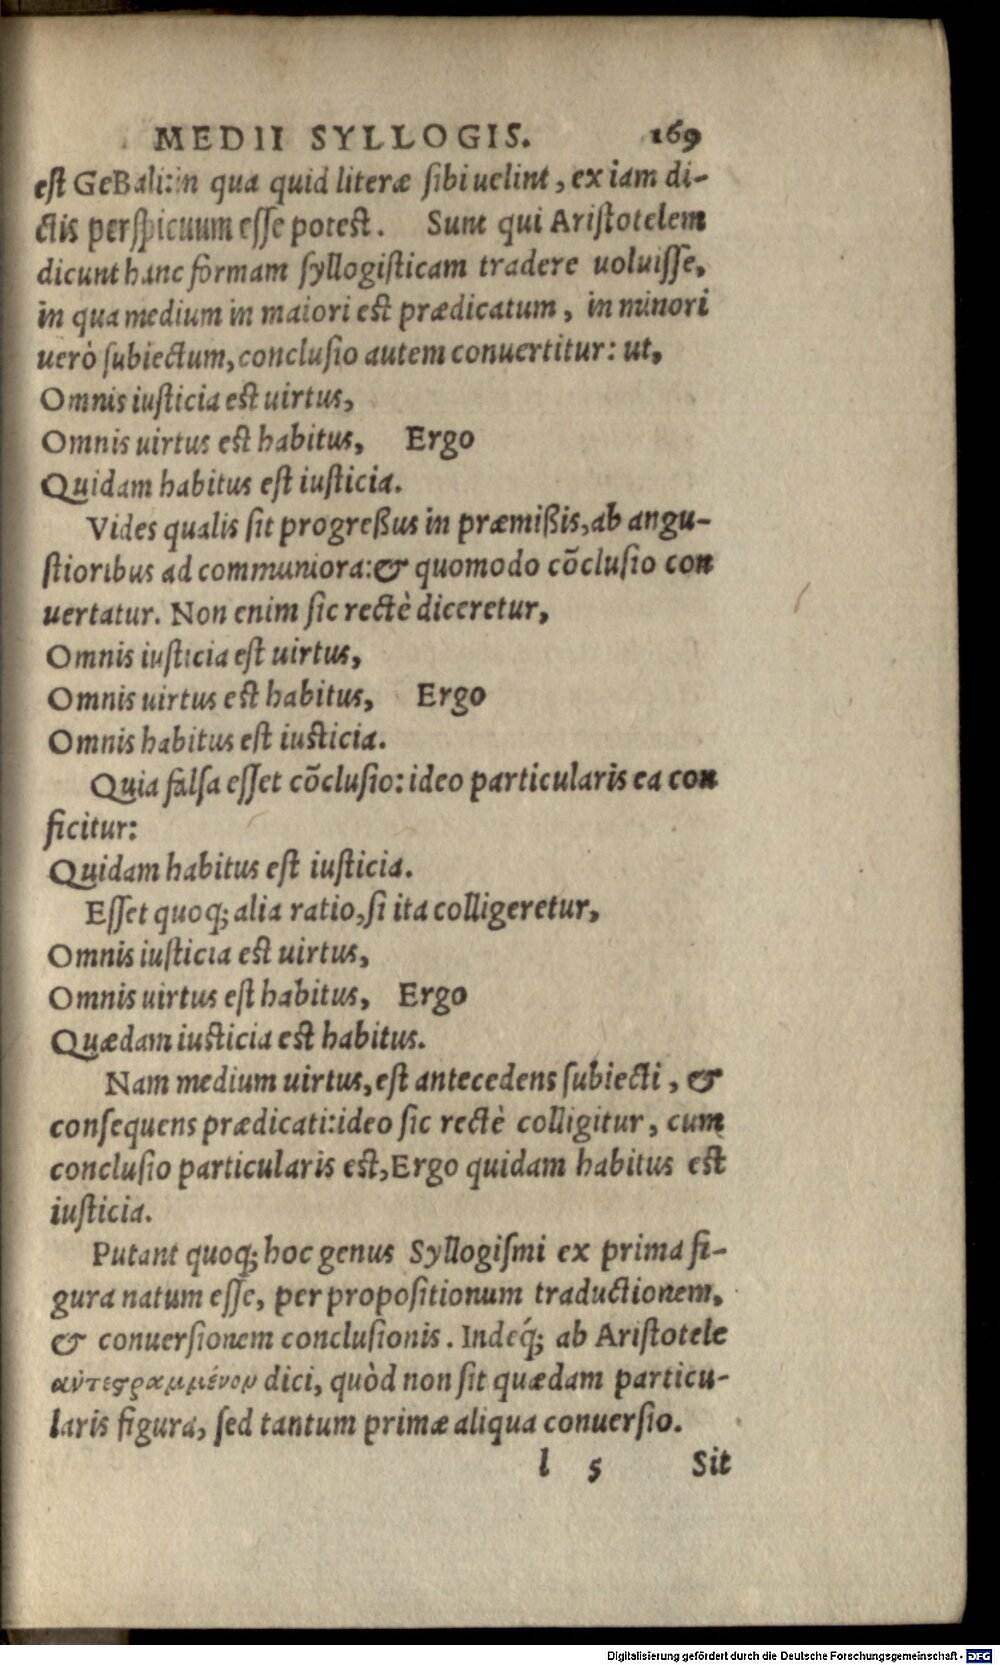 MEDII SYLLOGIS. 169
est GeBali: in qua quid literæ sibi uelint, ex iam di-
ctis perspicuum esse potest. Sunt qui Aristotelem
dicunt hanc formam syllogisticam tradere uoluisse,
in qua medium in maiori est prædicatum, in minori
uerò subiectum, conclusio autem conuertitur: ut,
Omnis iusticia est uirtus,
Omnis uirtus est habitus, Ergo
Quidam habitus est iusticia.
Vides qualis sit progreßus in præmißis, ab angu-
stioribus ad communiora: & quomodo cõclusio con
uertatur. Non enim sic rectè diceretur,
Omnis iusticia est uirtus,
Omnis uirtus est habitus, Ergo
Omnis habitus est iusticia.
Quia falsa esset cõclusio: ideo particularis ea con
ficitur:
Quidam habitus est iusticia.
Esset quoq; alia ratio, si ita colligeretur,
Omnis iusticia est uirtus,
Omnis uirtus est habitus, Ergo
Quædam iusticia est habitus.
Nam medium uirtus, est antecedens subiecti, &
consequens prædicati: ideo sic rectè colligitur, cum
conclusio particularis est, Ergo quidam habitus est
iusticia.
Putant quoq; hoc genus Syllogismi ex prima fi-
gura natum esse, per propositionum traductionem,
& conuersionem conclusionis. Indeq́; ab Aristotele
dici, quòd non sit quædam particu-
laris figura, sed tantum primæ aliqua conuersio.
l 5 Sit
Digitalisierung gefördert durch die Deutsche Forschungsgemeinschaft - DFG